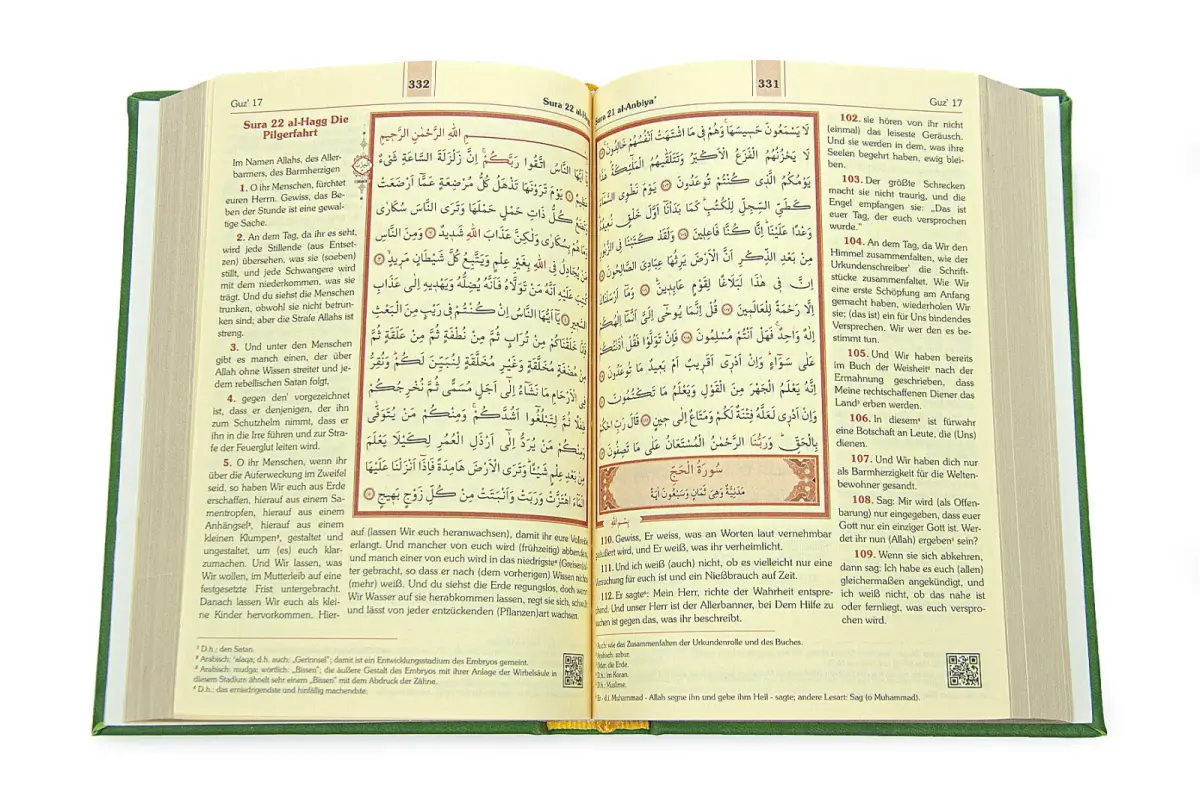 331
Sura 21 al-Anbiya'
Guz' 17
لَا يَسْمَعُونَ حَسِيسَهَا وَهُمْ فِي مَا اشْتَهَتْ أَنْفُسُهُمْ خَالِدُونَ
لَا يَحْزُنُهُمُ الْفَزَعُ الْأَكْبَرُ وَتَتَلَقّٰيهُمُ الْمَلٰٓئِكَةُ هٰذَا
يَوْمُكُمُ الَّذِي كُنْتُمْ تُوعَدُونَ يَوْمَ نَطْوِي السَّمَٓاءَ
كَطَيِّ السِّجِلِّ لِلْكُتُبِ كَمَا بَدَأْنَٓا أَوَّلَ خَلْقٍ نُعِيدُهُ
وَعْدًا عَلَيْنَا إِنَّا كُنَّا فَاعِلِينَ وَلَقَدْ كَتَبْنَا فِي الزَّبُورِ
مِنْ بَعْدِ الذِّكْرِ أَنَّ الْأَرْضَ يَرِثُهَا عِبَادِيَ الصَّالِحُونَ
إِنَّ فِي هٰذَا لَبَلَاغًا لِقَوْمٍ عَابِدِينَ وَمَٓا أَرْسَلْنَاكَ
إِلَّا رَحْمَةً لِلْعَالَمِينَ قُلْ إِنَّمَا يُوحٰٓى إِلَيَّ أَنَّمَٓا إِلٰهُكُمْ
إِلٰهٌ وَاحِدٌ فَهَلْ أَنْتُمْ مُسْلِمُونَ فَإِنْ تَوَلَّوْا فَقُلْ اٰذَنْتُكُمْ
عَلٰى سَوَٓاءٍ وَإِنْ أَدْرِٓي أَقَرِيبٌ أَمْ بَعِيدٌ مَا تُوعَدُونَ
إِنَّهُ يَعْلَمُ الْجَهْرَ مِنَ الْقَوْلِ وَيَعْلَمُ مَا تَكْتُمُونَ
وَإِنْ أَدْرِي لَعَلَّهُ فِتْنَةٌ لَكُمْ وَمَتَاعٌ إِلٰى حِينٍ قَالَ رَبِّ احْكُمْ
بِالْحَقِّ وَرَبُّنَا الرَّحْمٰنُ الْمُسْتَعَانُ عَلٰى مَا تَصِفُونَ
سُورَةُ الْحَجِّ
مَدَنِيَّةٌ وَهِيَ ثَمَانٍ وَسَبْعُونَ اٰيَةً
بِسْمِ اللّٰهِ
102. sie hören von ihr nicht
(einmal) das leiseste Geräusch.
Und sie werden in dem, was ihre
Seelen begehrt haben, ewig blei-
ben.
103. Der größte Schrecken
macht sie nicht traurig, und die
Engel empfangen sie: „Das ist
euer Tag, der euch versprochen
wurde.”
104. An dem Tag, da Wir den
Himmel zusammenfalten, wie der
Urkundenschreiber¹ die Schrift-
stücke zusammenfaltet. Wie Wir
eine erste Schöpfung am Anfang
gemacht haben, wiederholen Wir
sie; (das ist) ein für Uns bindendes
Versprechen. Wir wer den es be-
stimmt tun.
105. Und Wir haben bereits
im Buch der Weisheit² nach der
Ermahnung geschrieben, dass
Meine rechtschaffenen Diener das
Land³ erben werden.
106. In diesem⁴ ist fürwahr
eine Botschaft an Leute, die (Uns)
dienen.
107. Und Wir haben dich nur
als Barmherzigkeit für die Welten-
bewohner gesandt.
108. Sag: Mir wird (als Offen-
barung) nur eingegeben, dass euer
Gott nur ein einziger Gott ist. Wer-
det ihr nun (Allah) ergeben⁵ sein?
109. Wenn sie sich abkehren,
dann sag: Ich habe es euch (allen)
gleichermaßen angekündigt, und
ich weiß nicht, ob das nahe ist
oder fernliegt, was euch verspro-
chen wird.
110. Gewiss, Er weiss, was an Worten laut vernehmbar
geäußert wird, und Er weiß, was ihr verheimlicht.
111. Und ich weiß (auch) nicht, ob es vielleicht nur eine
Versuchung für euch ist und ein Nießbrauch auf Zeit.
112. Er sagte⁶: Mein Herr, richte der Wahrheit entspre-
chend. Und unser Herr ist der Allerbanner, bei Dem Hilfe zu
suchen ist gegen das, was ihr beschreibt.
Auch wie das Zusammenfalten der Urkundenrolle und des Buches.
Arabisch: zabur.
Oder: die Erde.
D.h.: im Koran.
D.h.: Muslime.
Er - d.i. Muhammad - Allah segne ihn und gebe ihm Heil - sagte; andere Lesart: Sag (o Muhammad).
Guz' 17
332
Sura 22 al-H
Sura 22 al-Hagg Die
Pilgerfahrt
Im Namen Allahs, des Aller-
barmers, des Barmherzigen
1. O ihr Menschen, fürchtet
euren Herrn. Gewiss, das Be-
ben der Stunde ist eine gewal-
tige Sache.
2. An dem Tag, da ihr es seht,
wird jede Stillende (aus Entset-
zen) übersehen, was sie (soeben)
stillt, und jede Schwangere wird
mit dem niederkommen, was sie
trägt. Und du siehst die Menschen
trunken, obwohl sie nicht betrun-
ken sind; aber die Strafe Allahs ist
streng.
3. Und unter den Menschen
gibt es manch einen, der über
Allah ohne Wissen streitet und je-
dem rebellischen Satan folgt,
4. gegen den³ vorgezeichnet
ist, dass er denjenigen, der ihn
zum Schutzhelm nimmt, dass er
ihn in die Irre führen und zur Stra-
fe der Feuerglut leiten wird.
5. O ihr Menschen, wenn ihr
über die Auferweckung im Zweifel
seid, so haben Wir euch aus Erde
erschaffen, hierauf aus einem Sa-
mentropfen, hierauf aus einem
Anhängsel⁴, hierauf aus einem
kleinen Klumpen⁵, gestaltet und
ungestaltet, um (es) euch klar-
zumachen. Und Wir lassen, was
Wir wollen, im Mutterleib auf eine
festgesetzte Frist untergebracht.
Danach lassen Wir euch als klei-
ne Kinder hervorkommen. Hier-
اللّٰهِ الرَّحْمٰنِ الرَّحِيمِ
يَٓا أَيُّهَا النَّاسُ اتَّقُوا رَبَّكُمْ إِنَّ زَلْزَلَةَ السَّاعَةِ شَيْءٌ
عَظِيمٌ يَوْمَ تَرَوْنَهَا تَذْهَلُ كُلُّ مُرْضِعَةٍ عَمَّٓا أَرْضَعَتْ
وَتَضَعُ كُلُّ ذَاتِ حَمْلٍ حَمْلَهَا وَتَرَى النَّاسَ سُكَارٰى
وَمَا هُمْ بِسُكَارٰى وَلٰكِنَّ عَذَابَ اللّٰهِ شَدِيدٌ وَمِنَ النَّاسِ
مَنْ يُجَادِلُ فِي اللّٰهِ بِغَيْرِ عِلْمٍ وَيَتَّبِعُ كُلَّ شَيْطَانٍ مَرِيدٍ
كُتِبَ عَلَيْهِ أَنَّهُ مَنْ تَوَلَّاهُ فَأَنَّهُ يُضِلُّهُ وَيَهْدِيهِ إِلٰى عَذَابِ
السَّعِيرِ يَٓا أَيُّهَا النَّاسُ إِنْ كُنْتُمْ فِي رَيْبٍ مِنَ الْبَعْثِ
فَإِنَّا خَلَقْنَاكُمْ مِنْ تُرَابٍ ثُمَّ مِنْ نُطْفَةٍ ثُمَّ مِنْ عَلَقَةٍ ثُمَّ
مِنْ مُضْغَةٍ مُخَلَّقَةٍ وَغَيْرِ مُخَلَّقَةٍ لِنُبَيِّنَ لَكُمْ وَنُقِرُّ
فِي الْأَرْحَامِ مَا نَشَٓاءُ إِلٰٓى أَجَلٍ مُسَمًّى ثُمَّ نُخْرِجُكُمْ
طِفْلًا ثُمَّ لِتَبْلُغُٓوا أَشُدَّكُمْ وَمِنْكُمْ مَنْ يُتَوَفّٰى
وَمِنْكُمْ مَنْ يُرَدُّ إِلٰٓى أَرْذَلِ الْعُمُرِ لِكَيْلَا يَعْلَمَ
مِنْ بَعْدِ عِلْمٍ شَيْئًا وَتَرَى الْأَرْضَ هَامِدَةً فَإِذَٓا أَنْزَلْنَا عَلَيْهَا
الْمَٓاءَ اهْتَزَّتْ وَرَبَتْ وَأَنْبَتَتْ مِنْ كُلِّ زَوْجٍ بَهِيجٍ
auf (lassen Wir euch heranwachsen), damit ihr eure Vollreife
erlangt. Und mancher von euch wird (frühzeitig) abberufen,
und manch einer von euch wird in das niedrigste⁶ (Greisen)al-
ter gebracht, so dass er nach (dem vorherigen) Wissen nichts
(mehr) weiß. Und du siehst die Erde regungslos, doch wenn
Wir Wasser auf sie herabkommen lassen, regt sie sich, schwillt
und lässt von jeder entzückenden (Pflanzen)art wachsen.
³ D.h.: den Satan.
⁴ Arabisch: ‘alaqa; d.h. auch: „Gerinnsel”; damit ist ein Entwicklungsstadium des Embryos gemeint.
⁵ Arabisch: mudga; wörtlich: „Bissen”; die äußere Gestalt des Embryos mit ihrer Anlage der Wirbelsäule in
diesem Stadium ähnelt sehr einem „Bissen” mit dem Abdruck der Zähne.
⁶ D.h.: das erniedrigendste und hinfällig machendste.